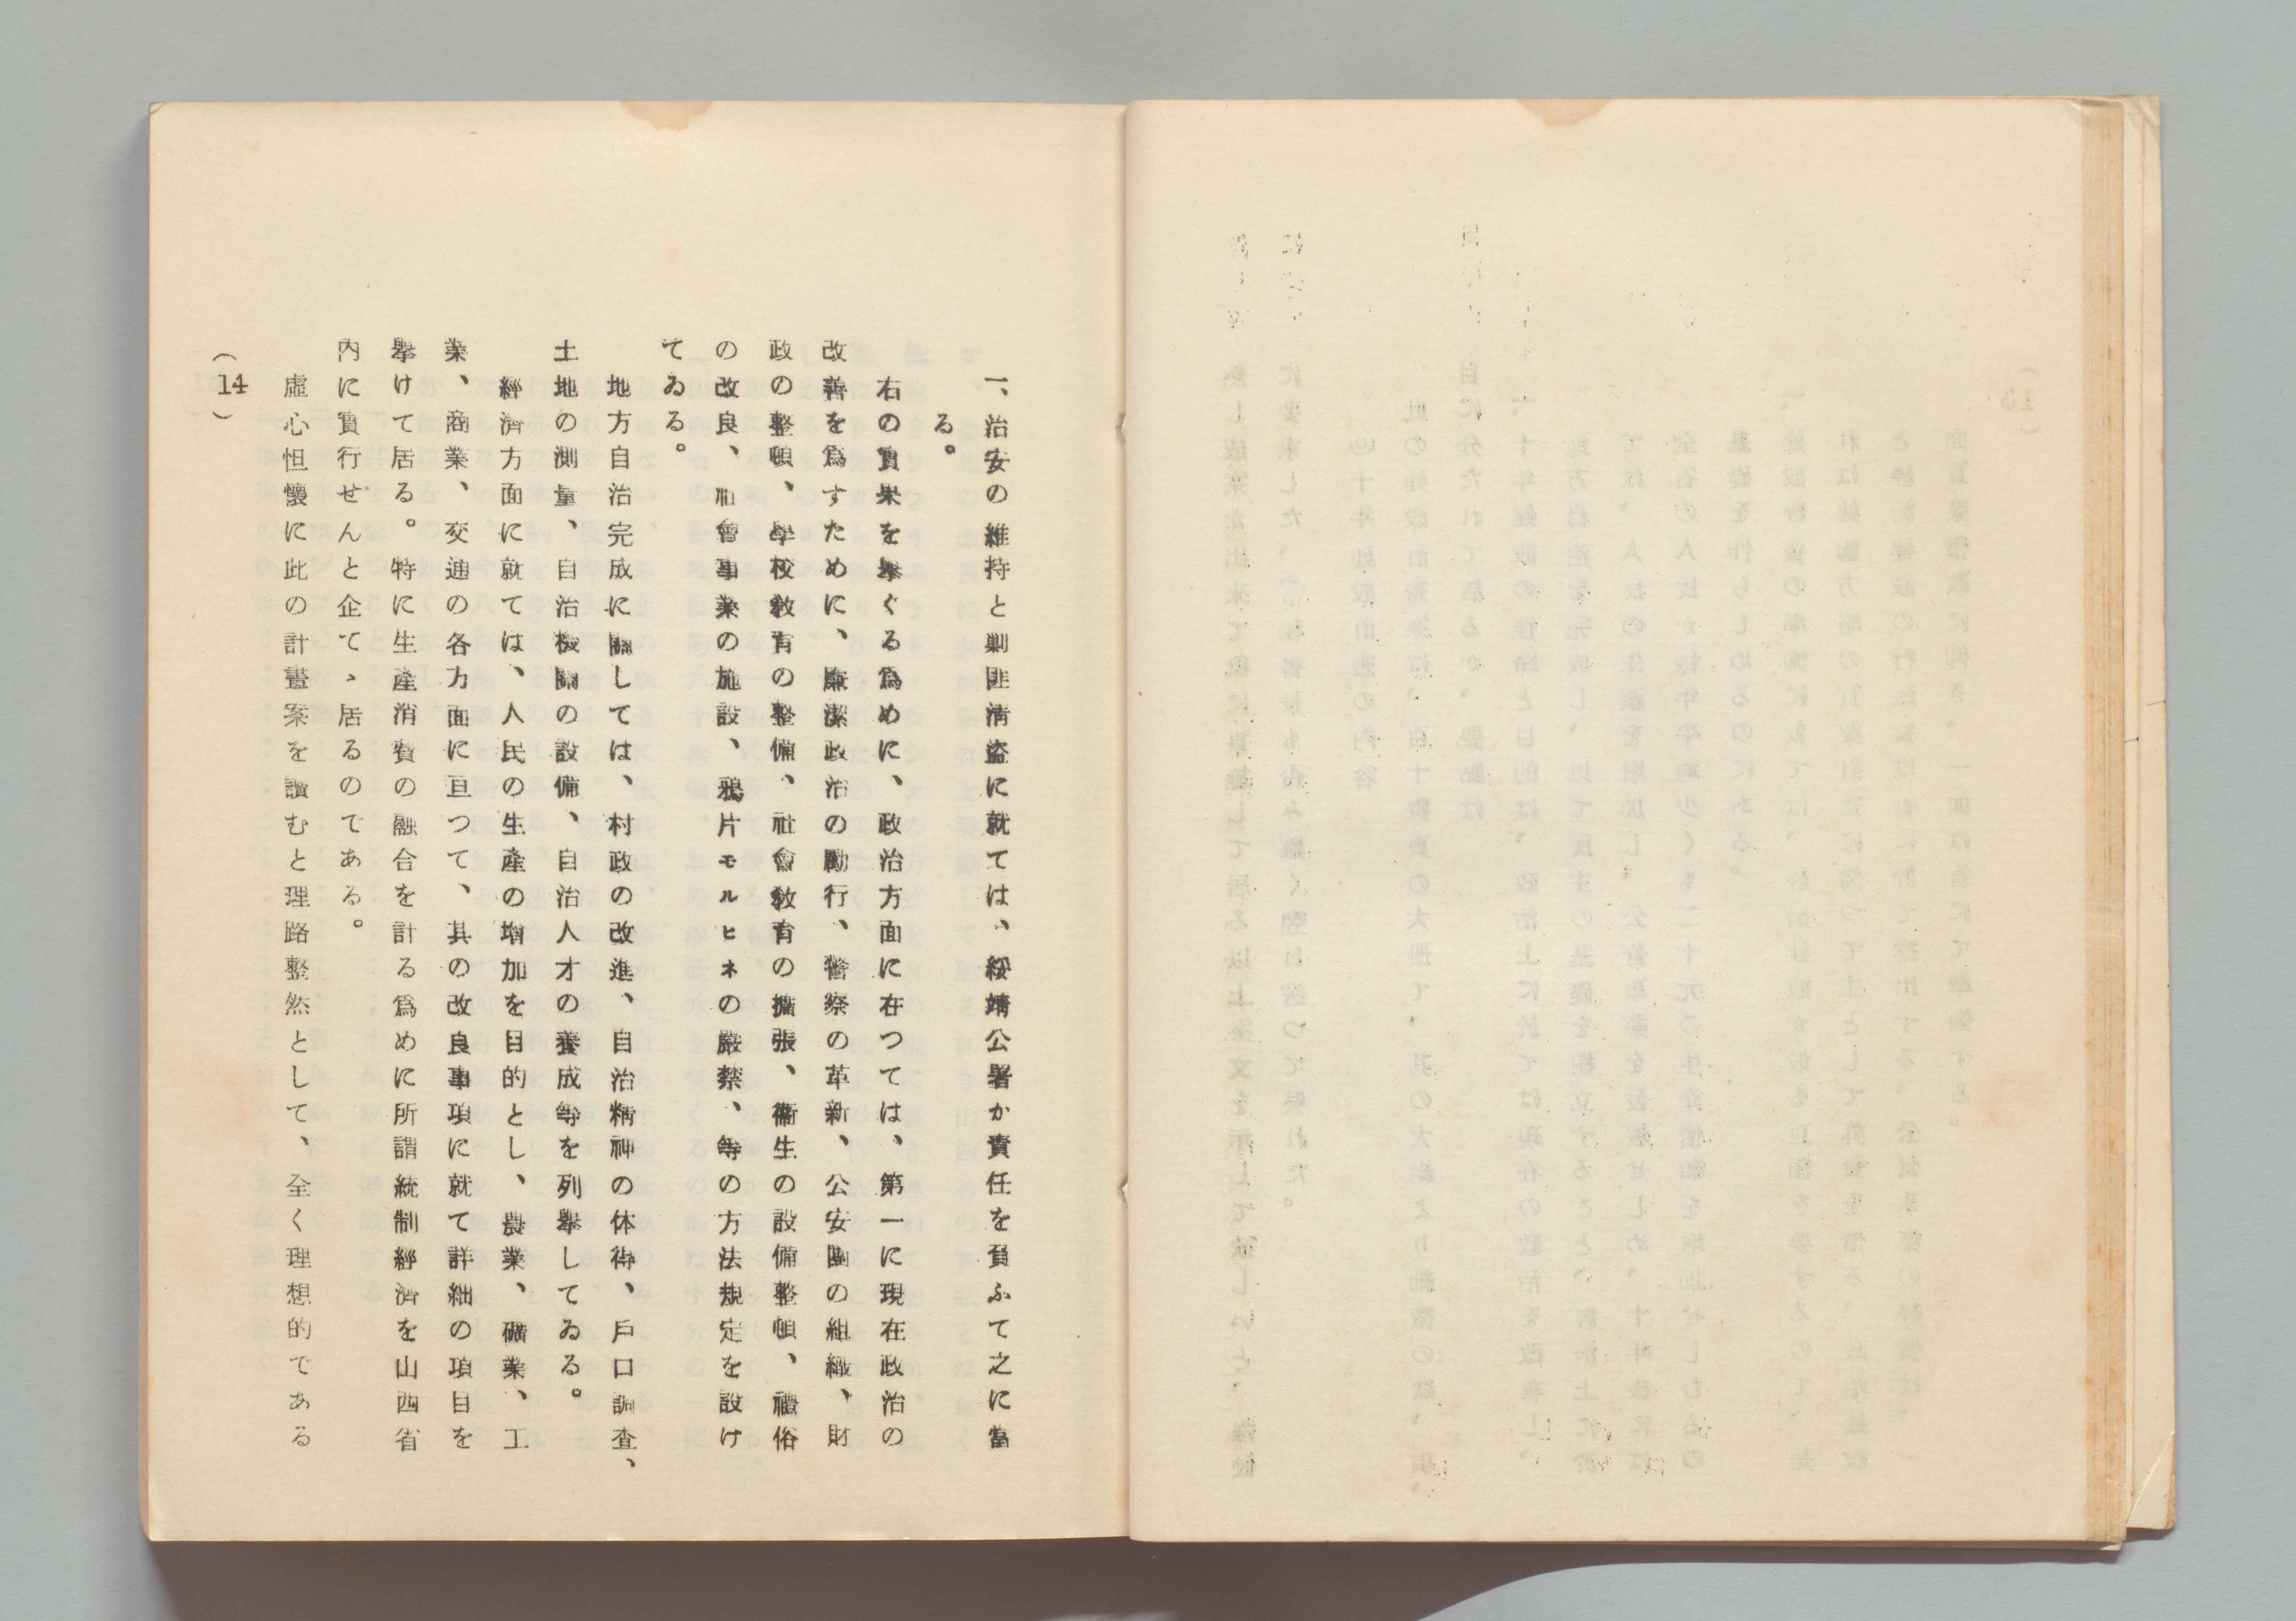 一、治安の維持と剿匪清盗に就ては、綏靖公署か責任を負ふて之に當
る。
右の實果を擧ぐる為めに、政治方面に在つては、第一に現在政治の
改善を為すために、廉潔政治の勵行、警察の革新、公安團の組織、財
政の整頓、學校敎育の整備、社會敎育の擴張、衞生の設備整頓、禮俗
の改良、社會事業の施設、鴉片モルヒネの嚴禁、等の方法規定を設け
てゐる。
地方自治完成に關しては、村政の改進、自治精神の体得、戶口調査、
土地の測量、自治機關の設備、自治人才の養成等を列擧してゐる。
經濟方面に就ては、人民の生產の增加を目的とし、農業、礦業、工
業、商業、交通の各方面に亘つて、其の改良事項に就て詳細の項目を
擧けて居る。特に生產消費の融合を計る爲めに所謂統制經濟を山西省
內に實行せんと企て、居るのである。
虛心怛懷に此の計畫案を讀むと理路整然として、全く理想的である
(14)